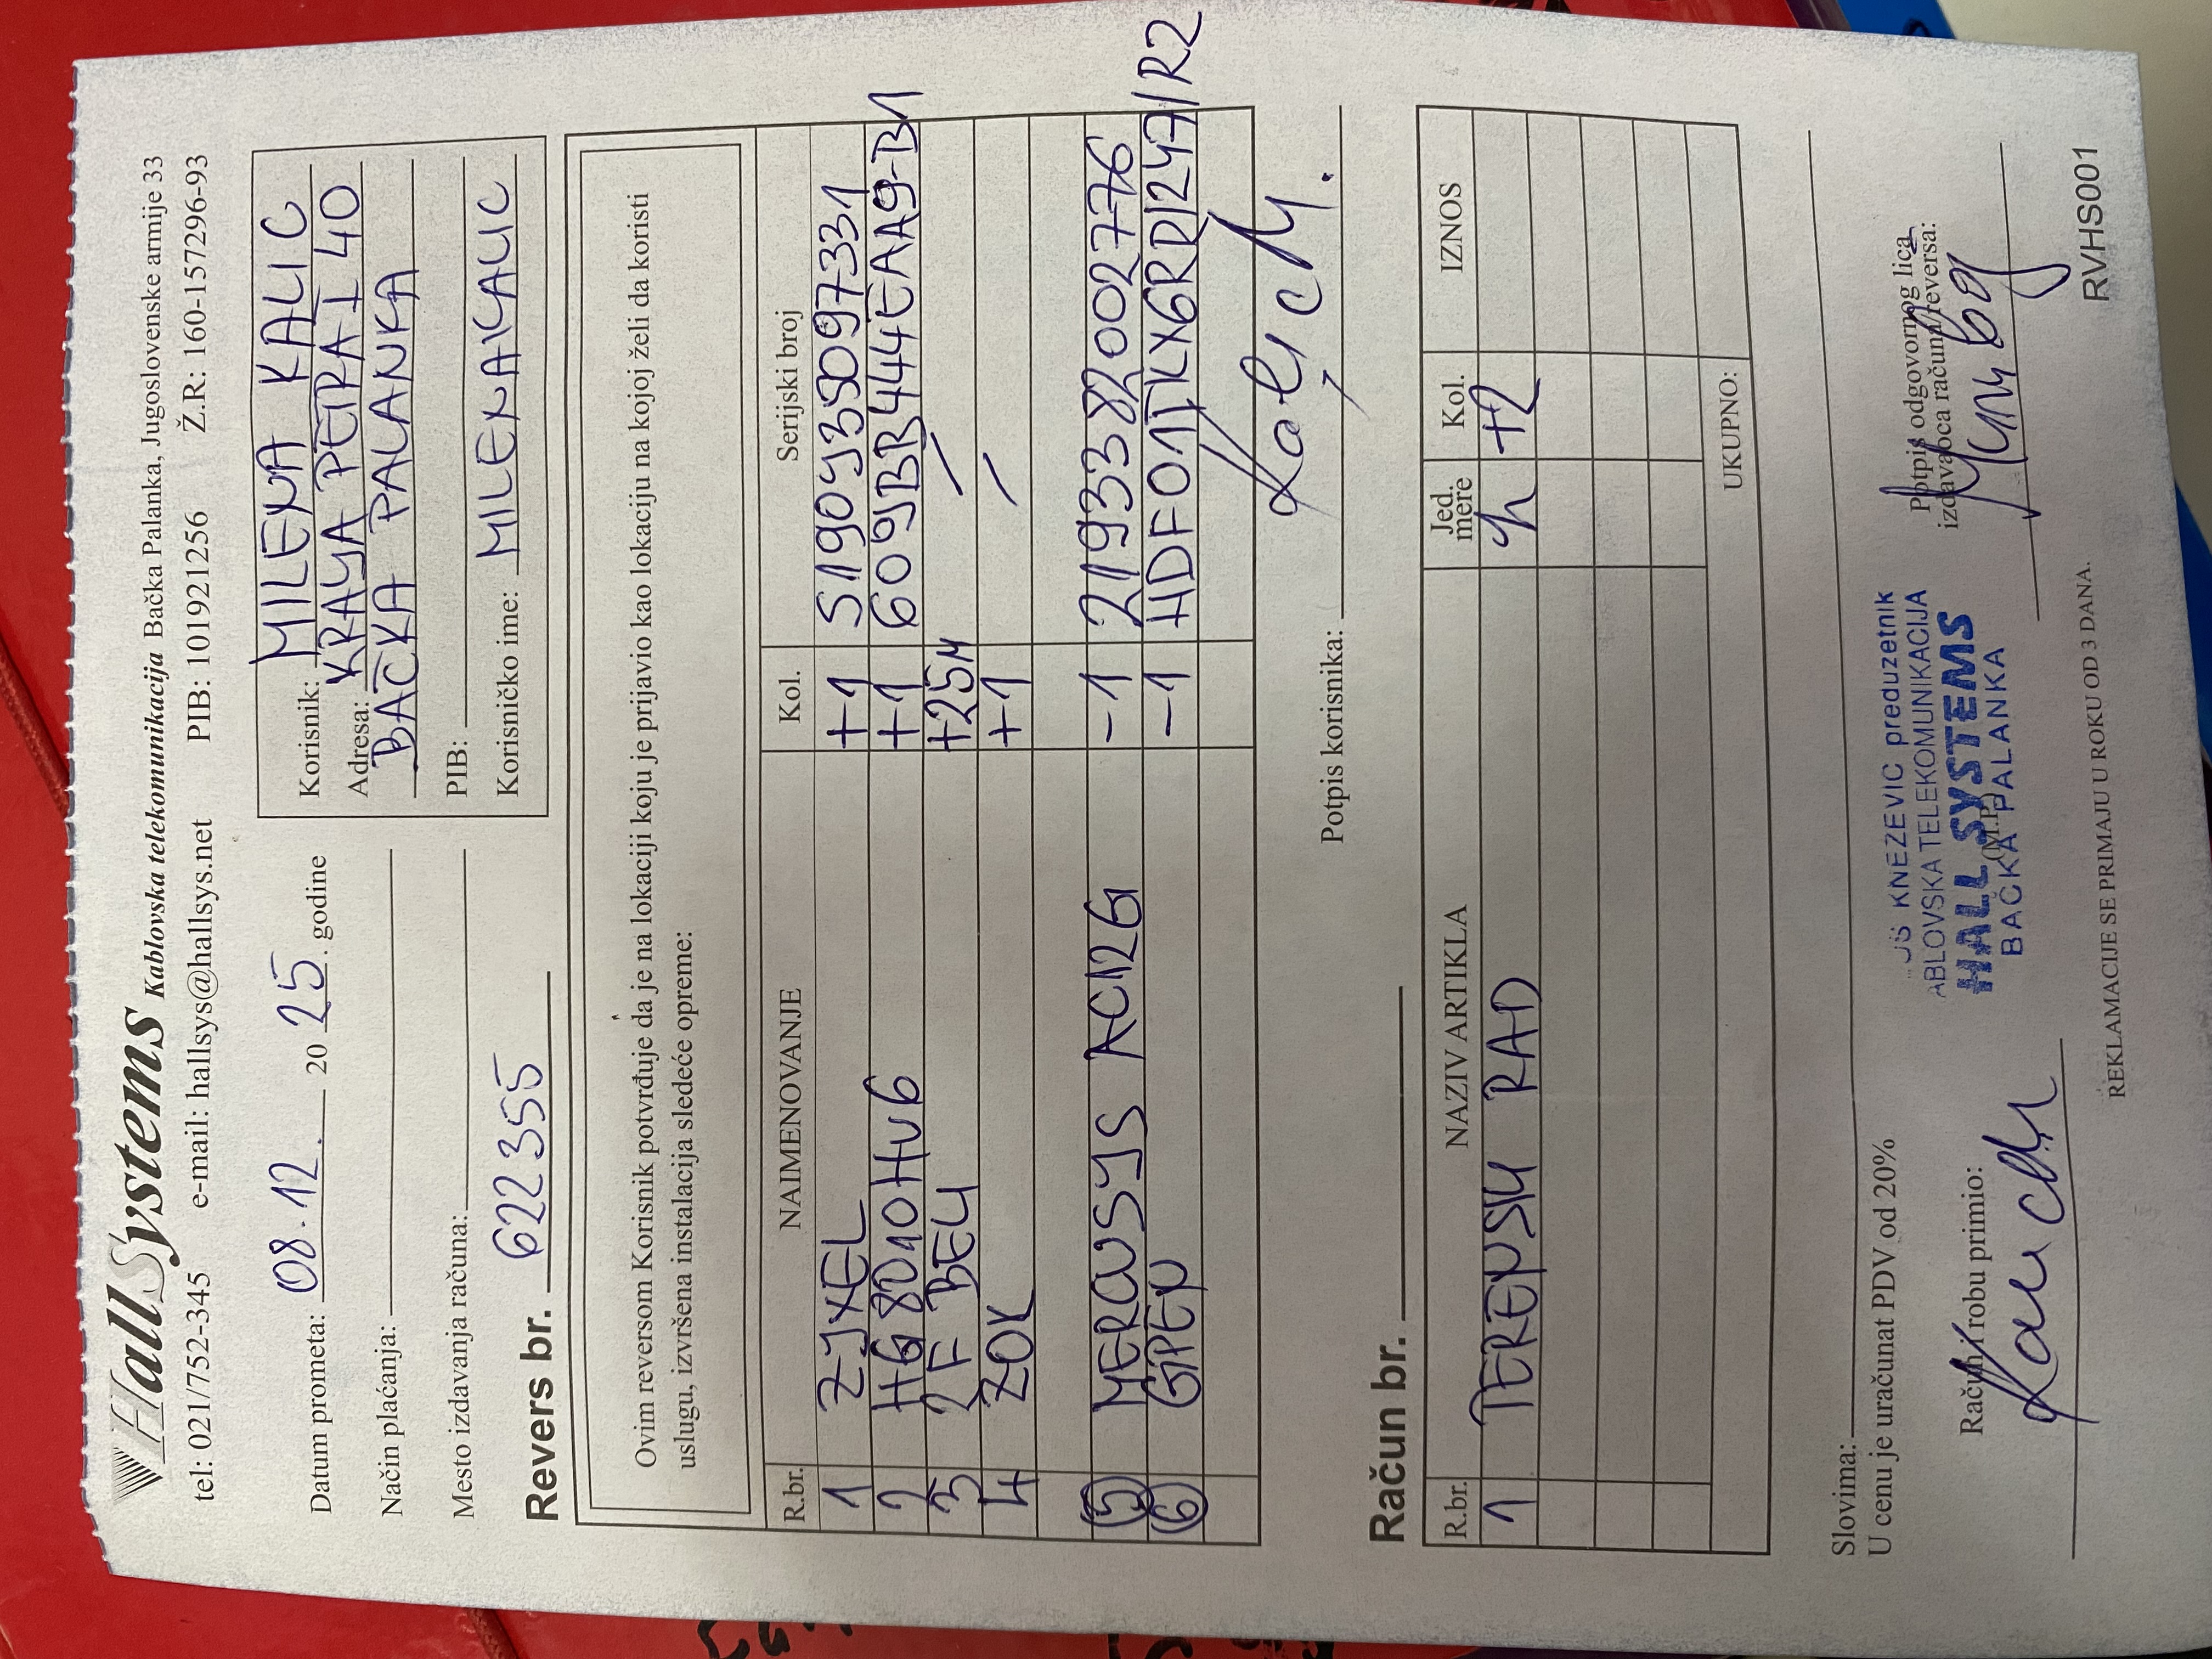 HallSystems Kablovska telekomunikacija Bačka Palanka, Jugoslovenske armije 33
tel: 021/752-345 e-mail: hallsys@hallsys.net PIB: 101921256 Ž.R: 160-157296-93
Datum prometa: 08.12. 20 25. godine
Način plaćanja:
Mesto izdavanja računa:
Korisnik: MILENA KALIC
Adresa: KRALJA PETRA I 40
BAČKA PALANKA
PIB:
Korisničko ime: MILENAKALIC
Revers br. 622355
Ovim reversom Korisnik potvrđuje da je na lokaciji koju je prijavio kao lokaciju na kojoj želi da koristi
uslugu, izvršena instalacija sledeće opreme:
R.br. NAIMENOVANJE Kol. Serijski broj
1 ZYXEL +1 S190Y35097331
2 HG8010HV6 +1 609BB444EAA9-B1
3 2F BELI +25M /
4 ZOK +1 /
5 MERCUSYS AC12G -1 2193382002776
6 GPEN -1 HDF01TKX6RD/247/R2
Potpis korisnika: Kalić M.
Račun br.
R.br. NAZIV ARTIKLA Jed. mere Kol. IZNOS
1 TERENSKI RAD h +2
UKUPNO:
Slovima:
U cenu je uračunat PDV od 20%
Račun i robu primio:
KNEZEVIC preduzetnik
ABLOVSKA TELEKOMUNIKACIJA
HALL SYSTEMS
BAČKA PALANKA
(M.P.)
Potpis odgovornog lica
izdavaoca računa/reversa:
REKLAMACIJE SE PRIMAJU U ROKU OD 3 DANA.
RVHS001